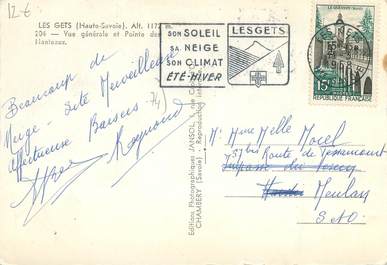 12 €
LES GETS (Haute-Savoie). Alt. 1172 m.
206 - Vue générale et Pointe de
Nantaux.
SON SOLEIL
SA NEIGE
SON CLIMAT
ÉTÉ-HIVER
LES GETS
LE QUESNOY
15F
POSTES
REPUBLIQUE FRANÇAISE
Beaucoup de
Neige - Site Merveilleux
Affectueux Baisers
Raymond
74
Editions Photographiques JANSOL
CHAMBERY (Savoie) - Reproduction
M. Mme Melle Morel
37 bis Route de Tessancourt
Impasse du
Meulan
S & O